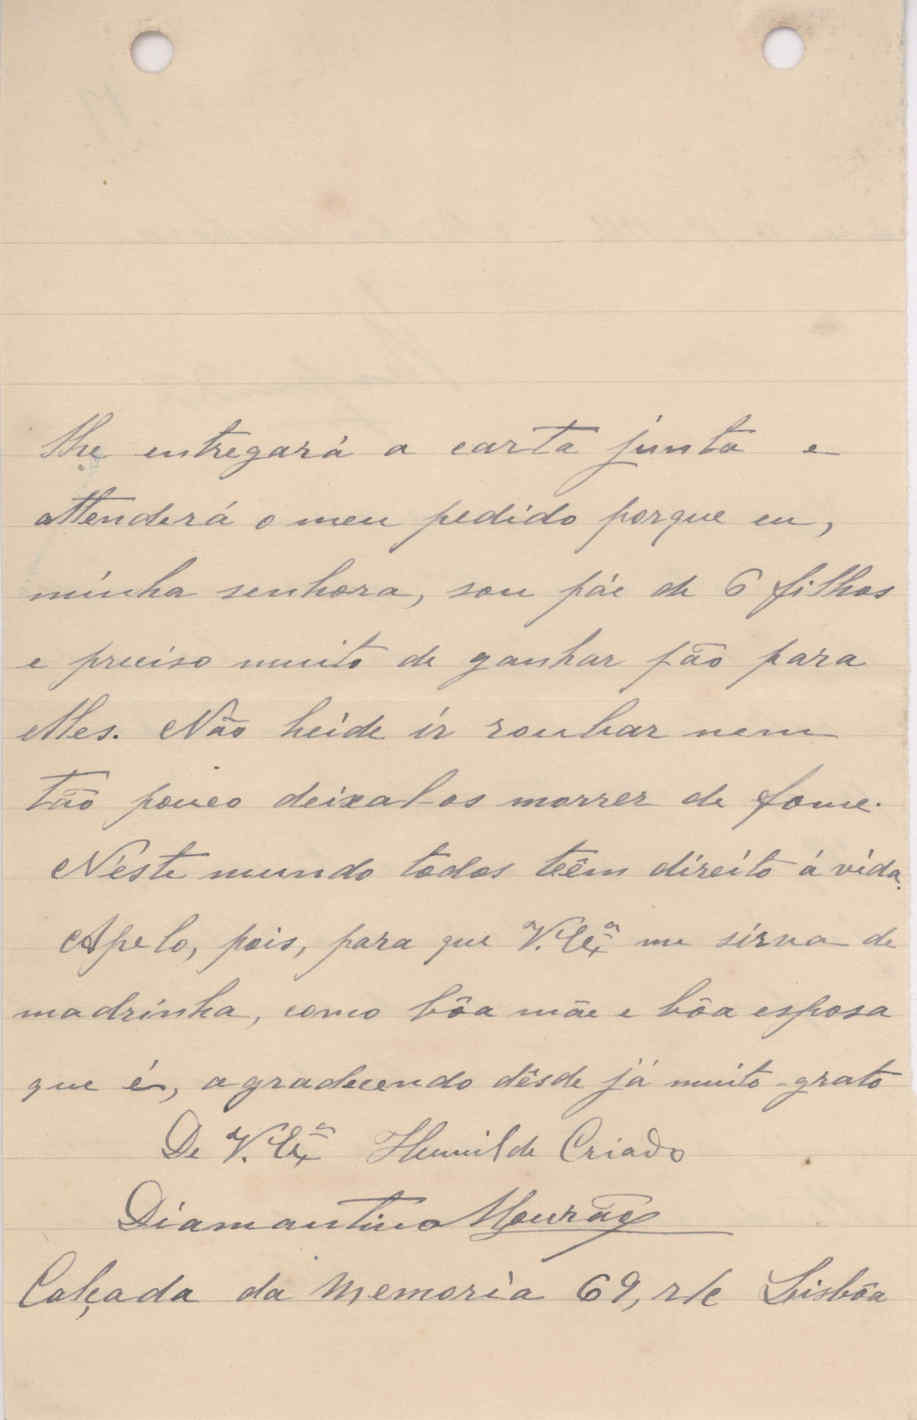 lhe entregará a carta junta e
attenderá o meu pedido porque eu,
minha senhora, sou páe de 6 filhos
e preciso muito de ganhar pão para
elles. Não heide ir roubar nem
tão pouco deixal-os morrer de fome.
N'este mundo todos têem direito á vida.
Apelo, pois, para que V. Exª me sirva de
madrinha, como bôa mãe e bôa esposa
que é, agradecendo dêsde já muito grato
De V. Exª Humilde Criado
Diamantino Mourão
Calçada da Memoria 69, r/c Lisbôa